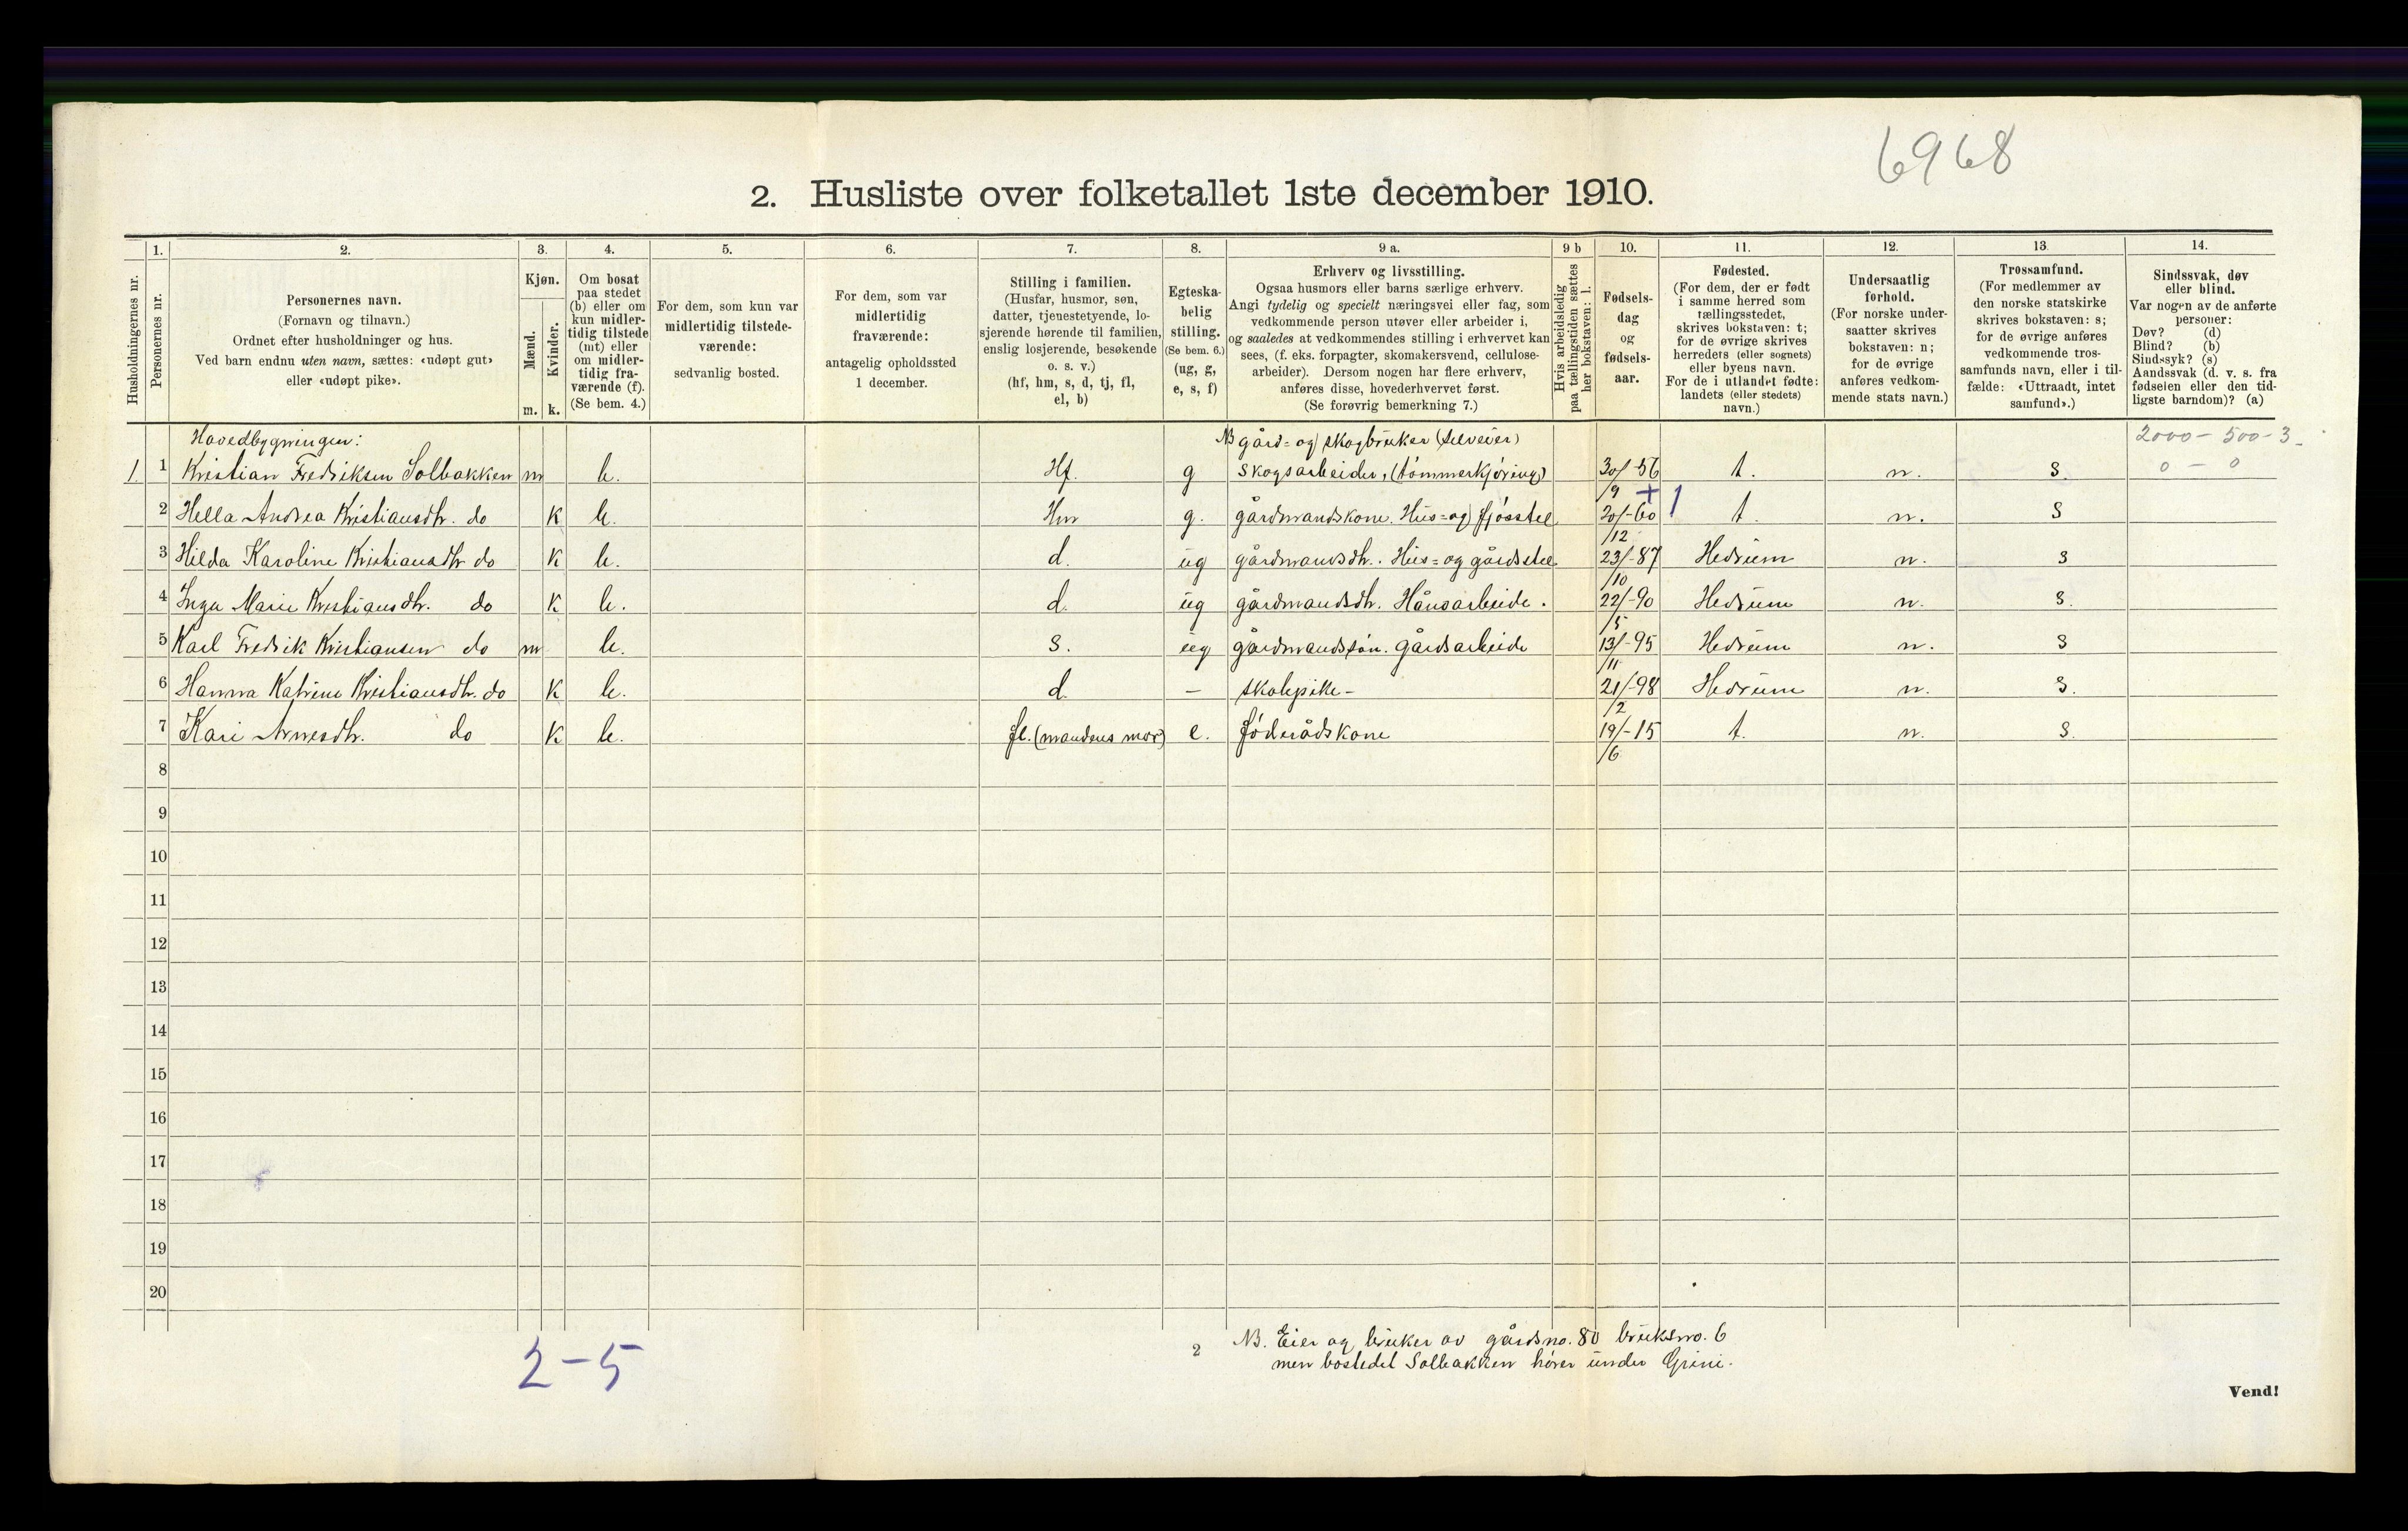 6968
2. Husliste over folketallet 1ste december 1910.
Husholdningernes nr.
1.
Personernes nr.
2.
Personernes navn.
(Fornavn og tilnavn.)
Ordnet efter husholdninger og hus.
Ved barn endnu uten navn, sættes: «udøpt gut»
eller «udøpt pike».
3.
Kjøn.
Mænd.
Kvinder.
m. k.
4.
Om bosat
paa stedet
(b) eller om
kun midler-
tidig tilstede
(mt) eller
om midler-
tidig fra-
værende (f).
(Se bem. 4.)
5.
For dem, som kun var
midlertidig tilstede-
værende:
sedvanlig bosted.
6.
For dem, som var
midlertidig
fraværende:
antagelig opholdssted
1 december.
7.
Stilling i familien.
(Husfar, husmor, søn,
datter, tjenestetyende, lo-
sjerende hørende til familien,
enslig losjerende, besøkende
o. s. v.)
(hf, hm, s, d, tj, fl,
el, b)
8.
Egteska-
belig
stilling.
(Se bem. 6.)
(ug, g,
e, s, f)
9 a.
Erhverv og livsstilling.
Ogsaa husmors eller barns særlige erhverv.
Angi tydelig og specielt næringsvei eller fag, som
vedkommende person utøver eller arbeider i,
og saaledes at vedkommendes stilling i erhvervet kan
sees, (f. eks. forpagter, skomakersvend, cellulose-
arbeider). Dersom nogen har flere erhverv,
anføres disse, hovederhvervet først.
(Se forøvrig bemerkning 7.)
9 b
Hvis arbeidsledig
paa tællingstiden sættes
her bokstaven: l.
10.
Fødsels-
dag
og
fødsels-
aar.
11.
Fødested.
(For dem, der er født
i samme herred som
tællingsstedet,
skrives bokstaven: t;
for de øvrige skrives
herredets (eller sognets)
eller byens navn.
For de i utlandet fødte:
landets (eller stedets)
navn.)
12.
Undersaatlig
forhold.
(For norske under-
saatter skrives
bokstaven: n;
for de øvrige
anføres vedkom-
mende stats navn.)
13.
Trossamfund.
(For medlemmer av
den norske statskirke
skrives bokstaven: s;
for de øvrige anføres
vedkommende tros-
samfunds navn, eller i til-
fælde: «Uttraadt, intet
samfund».)
14.
Sindssvak, døv
eller blind.
Var nogen av de anførte
personer:
Døv? (d)
Blind? (b)
Sindssyk? (s)
Aandssvak (d. v. s. fra
fødselen eller den tid-
ligste barndom)? (a)
Hovedbygningen: NB gård= og skogbruker (selveier) 2000 - 500 - 3
1. 1 Kristian Fredriksen Solbakken m b. Hf. g Skogsarbeider, (tømmerkjøring) 30/9 -56 t. n. s. 0 - 0
2 Hella Andrea Kristiansdtr. do k b. Hm g. gårdmandskone. Hus= og fjösstel 20/12 -60 + 1 t. n. s
3 Hilda Karoline Kristiansdtr do k b. d. ug gårdmandsdtr. Hus= og gårdsstel 23/10 -87 Hedrum n. s
4 Inga Marie Kristiansdtr. do k b. d. ug gårdmandsdtr. Håndarbeide. 22/5 -90 Hedrum n. s.
5 Karl Fredrik Kristiansen do m b. s. ug gårdmandssøn. Gårdsarbeide 13/11 -95 Hedrum n. s
6 Hanna Katrine Kristiansdtr. do k b. d. - skolepike - 21/2 -98 Hedrum n. s.
7 Kari Arnesdtr. do k b. fl. (mandens mor) e. föderådskone 19/6 -15 t. n. s.
8
9
10
11
12
13
14
15
16
17
18
19
20
2-5
2
NB. Eier og bruker av gårdsno. 80 bruksno. 6
men bostedet Solbakken hører under Grini.
Vend!